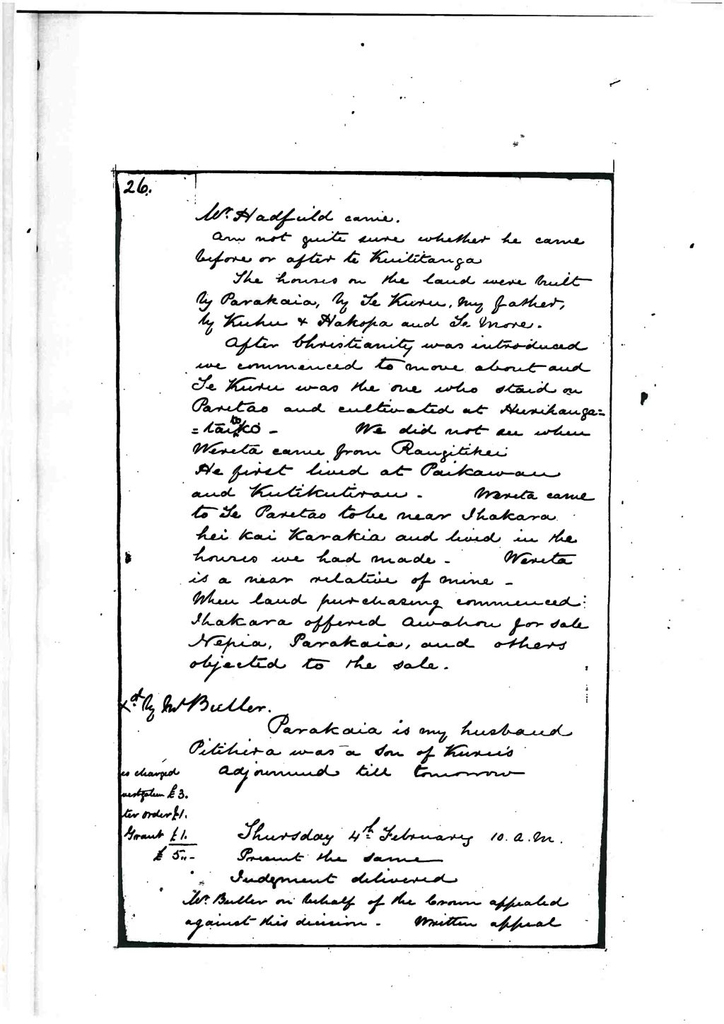 26.
Mr. Hadfield came.
Am not quite sure whether he came
before or after te Kuititanga
The houses on the land were built
by Parakaia, by Te Kuru, my father,
by Kuhu & Hakopa and Te More.
After Christianity was introduced
we commenced to move about and
Te Kuru was the one who staid on
Paretao and cultivated at Hurihanga=
=taiko - We did not see when
Wereta came from Rangitikei
He first lived at Paikawau
and Kutikutirau - Wereta came
to Te Paretao to be near Ihakara
hei kai Karakia and lived in the
houses we had made - Wereta
is a near relative of mine -
When land purchasing commenced
Ihakara offered Awahou for sale
Nepia, Parakaia, and others
objected to the sale.
xd by Mr Butler.
Parakaia is my husband
Pitihira was a son of Kuru's
Adjourned till tomorrow
es charged
£3.
ter order £1.
Grant £1.
£5..-
Thursday 4th February 10. a.m.
Present the same
Judgment delivered
Mr. Butler on behalf of the Crown appealed
against this decision - Written appeal